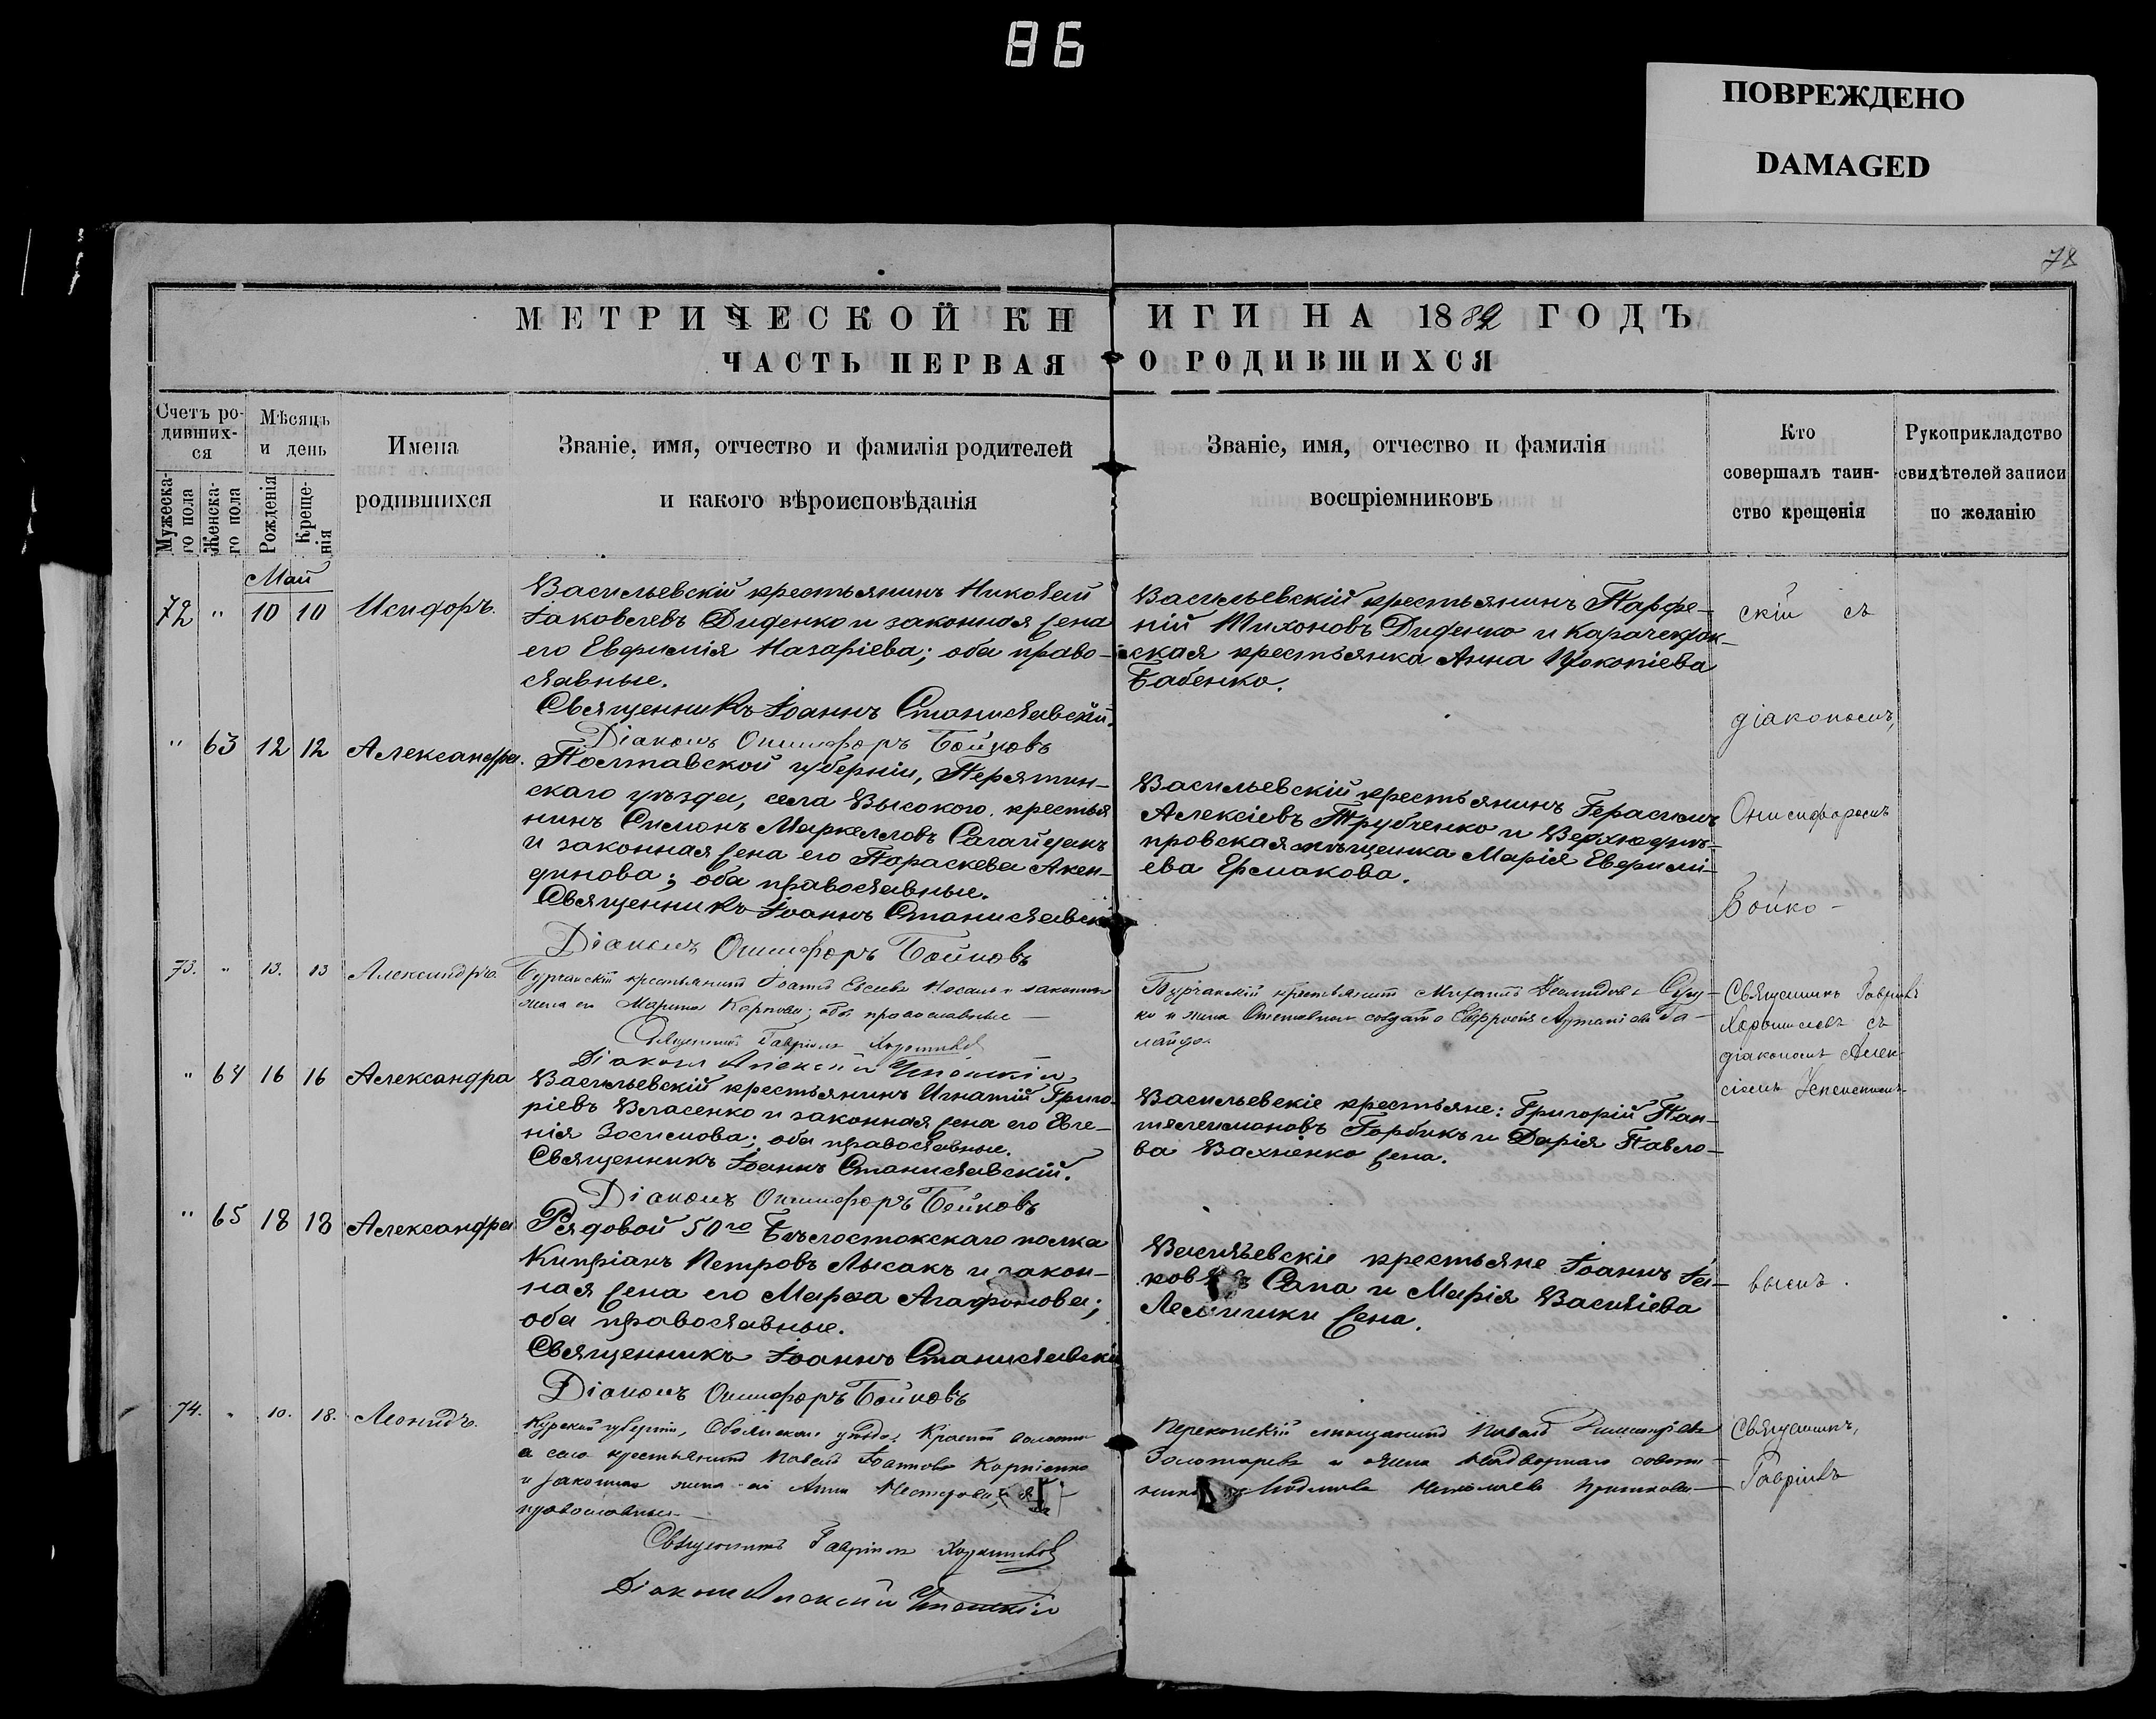 86
ПОВРЕЖДЕНО
DAMAGED
78
МЕТРИЧЕСКОЙ КНИГИ НА 1882 ГОДЪ
ЧАСТЬ ПЕРВАЯ О РОДИВШИХСЯ
Счетъ ро-
дивших-
ся
Мужеска-
го пола
Женска-
го пола
Мѣсяцъ
и день
Рожденія
Креще-
нія
Имена
родившихся
Званіе, имя, отчество и фамилія родителей
и какого вѣроисповѣданія
Званіе, имя, отчество и фамилія
воспріемниковъ
Кто
совершалъ таин-
ство крещенія
Рукоприкладство
свидѣтелей записи
по желанію
Май
72 " 10 10 Исидоръ.
Васильевскій крестьянинъ Николай
Іаковлевъ Диденко и законная жена
его Евфимія Назаріева; оба право-
славные.
Священникъ Іоаннъ Станиславскій.
Діаконъ Онисифоръ Бойковъ
Васильевскій крестьянинъ Парфе-
ній Тихоновъ Диденко и Карачекрак-
ская крестьянка Анна Прокопіева
Бабенко.
скій съ
діакономъ,
" 63 12 12 Александра.
Полтавской губерніи, Пирятин-
скаго уѣзда, села Высокого крестья
нинъ Симонъ Маркелловъ Сагайдакъ
и законная жена его Параскева Акин-
динова; оба православные.
Священникъ Іоаннъ Станиславскі
Діаконъ Онисифоръ Бойковъ
Васильевскій крестьянинъ Герасимъ
Алексіевъ Трубченко и Верхнеднѣ-
провская мѣщанка Марія Евфимі-
ева Ермакова.
Онисифоромъ
Бойко-
73. " 13. 13 Александръ.
Бурчакскій крестьянинъ Іоаннъ Евсіевъ Носаль и законная
жена его Марина Карпова; оба православные
Священникъ Гавріилъ Хорошиловъ
Діаконъ Алексій Успенскій
Бурчакскій крестьянинъ Михаилъ
ко и жена отставнаго солдата Евфросинія
Священникъ Гавріилъ
Хорошиловъ съ
діакономъ Алек-
сіемъ Успенскимъ
" 64 16 16 Александра
Васильевскій крестьянинъ Игнатій Григо-
ріевъ Власенко и законная жена его Евге-
нія Зосимова; оба православные.
Священникъ Іоаннъ Станиславскій.
Діаконъ Онисифоръ Бойковъ
Васильевскіе крестьяне: Григорій Пан-
телеимоновъ Горбикъ и Дарія Павло-
ва Вахненко жена.
" 65 18 18 Александра
Рядовой 50го Бѣлостокскаго полка
Кипріанъ Петровъ Лысакъ и закон-
ная жена его Марѳа Агафонова;
оба православные.
Священникъ Іоаннъ Станиславскі
Діаконъ Онисифоръ Бойковъ
Васильевскіе крестьяне Іоаннъ Іа-
ковлевъ Сапа и Марія Василіева
жена.
вымъ.
74. " 10. 18. Леонидъ.
Курской губерніи, Обоянскаго уѣзда, Красной волости
села крестьянинъ Павелъ Іоанновъ Корніенко
и законная жена его Анна Нестерова; оба
православные
Священникъ Гавріилъ Хорошиловъ
Діаконъ Алексій Успенскій
Перекопскій мѣщанинъ Павелъ Димитріевъ
Золотаревъ и жена Надворнаго совѣт-
ника Людмила Николаева
Священникъ,
Гавріилъ